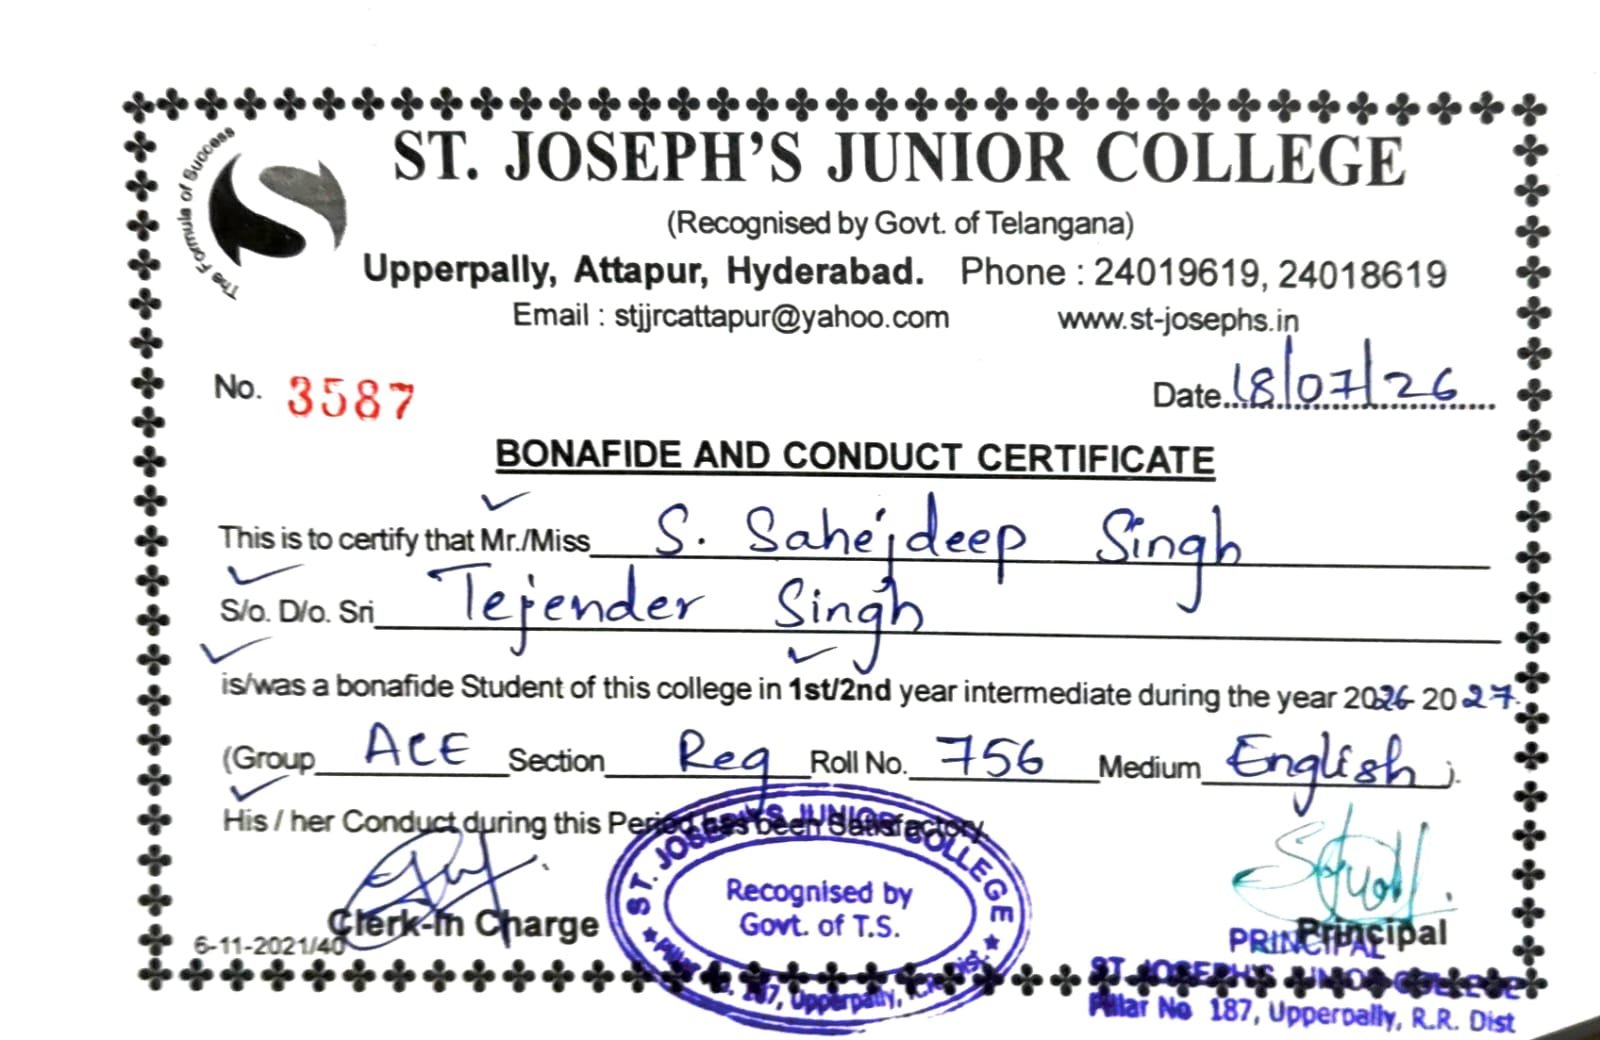 The Formula of Success
ST. JOSEPH'S JUNIOR COLLEGE
(Recognised by Govt. of Telangana)
Upperpally, Attapur, Hyderabad. Phone : 24019619, 24018619
Email : stjjrcattapur@yahoo.com www.st-josephs.in
No. 3587 Date 18/07/26
BONAFIDE AND CONDUCT CERTIFICATE
This is to certify that Mr./Miss S. Sahejdeep Singh
S/o. D/o. Sri Tejender Singh
is/was a bonafide Student of this college in 1st/2nd year intermediate during the year 2026 2027
(Group ACE Section Reg Roll No. 756 Medium English ).
His / her Conduct during this Period has been Satisfactory.
ST. JOSEPH'S JUNIOR COLLEGE
Recognised by
Govt. of T.S.
187, Upperpally,
Clerk-In Charge
Principal
6-11-2021/40
PRINCIPAL
ST JOSEPH'S JUNIOR COLLEGE
Pillar No 187, Upperpally, R.R. Dist